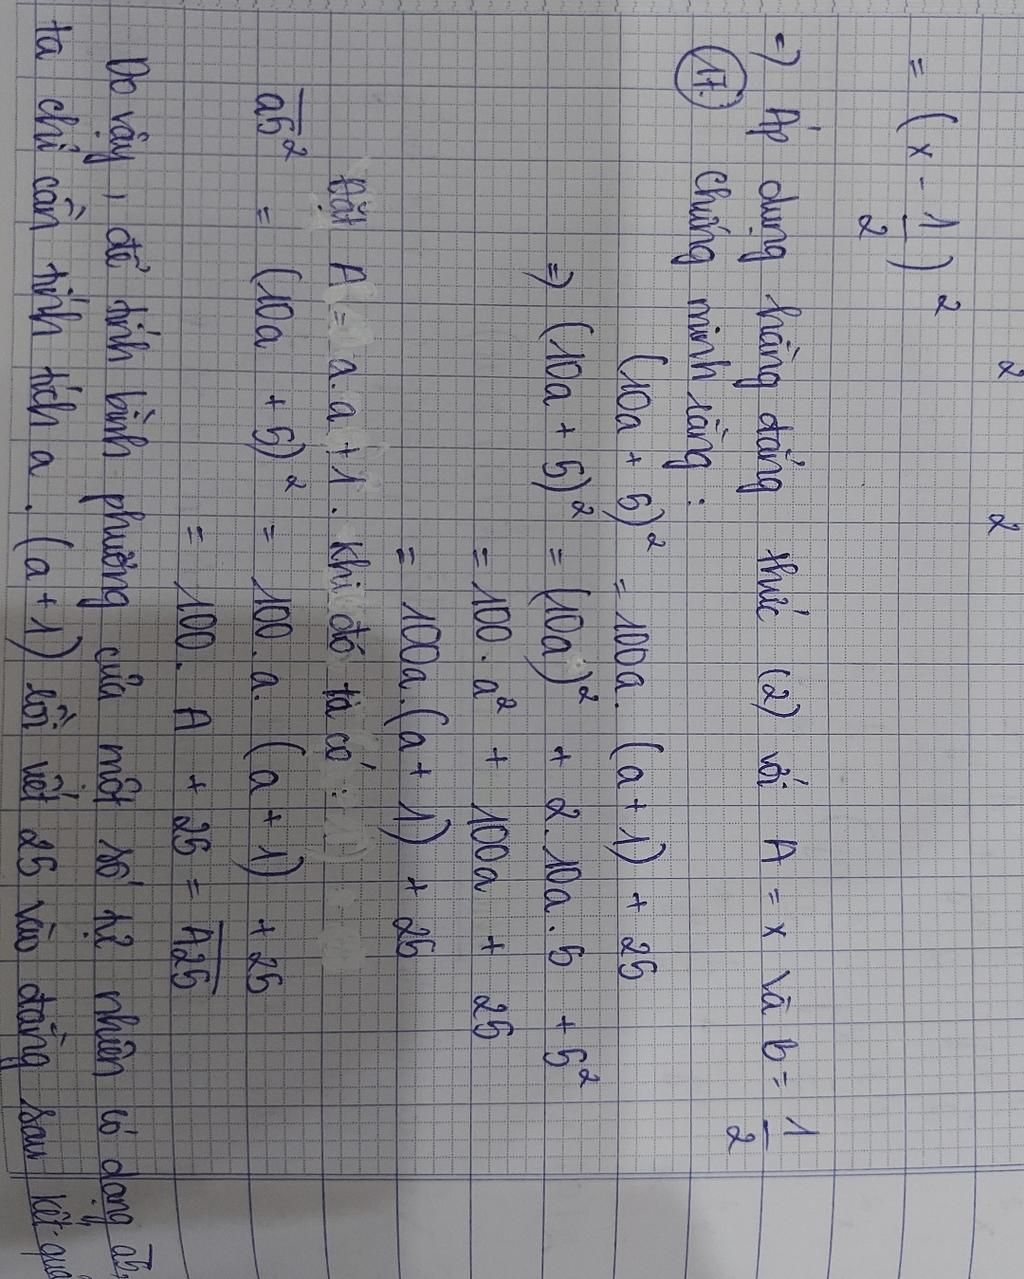 2 2
= (x - 1/2)²
=) Áp dụng hằng đẳng thức (2) với A = x và b = 1/2
17. Chứng minh rằng:
(10a + 5)² = 100a. (a + 1) + 25
=) (10a + 5)² = (10a)² + 2.10a.5 + 5²
= 100. a² + 100a + 25
= 100a.(a + 1) + 25
Đặt A = a.a + 1. Khi đó ta có:
a̅5̅² = (10a + 5)² = 100. a. (a + 1) + 25
= 100. A + 25 = A̅2̅5̅
Do vậy, để tính bình phương của một số tự nhiên có dạng a̅5̅,
ta chỉ cần tính tích a. (a + 1) rồi viết 25 vào đằng sau kết quả